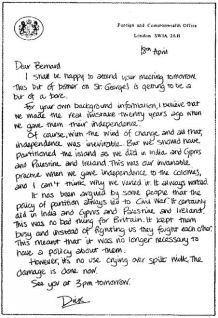 Foreign and Commonwealth Office
London SW1A 2AH
18th April
Dear Bernard
I shall be happy to attend your meeting tomorrow.
This bit of bother on St George's is getting to be a
bit of a bore.
For your own background information, I believe that
we made the real mistake twenty years ago when
we gave them their independence.
Of course, with the wind of change, and all that,
independence was inevitable. But we should have
partitioned the island as we did in India and Cyprus
and Palestine and Ireland. This was our invariable
practice when we gave independence to the colonies,
and I can't think why we varied it. It always worked.
It has been argued by some people that the
policy of partition always led to Civil War. It certainly
did in India and Cyprus and Palestine and Ireland.
This was no bad thing for Britain. It kept them
busy and instead of fighting us they fought each other.
This meant that it was no longer necessary to
have a policy about them.
However, it's no use crying over spilt milk. The
damage is done now.
See you at 3pm tomorrow.